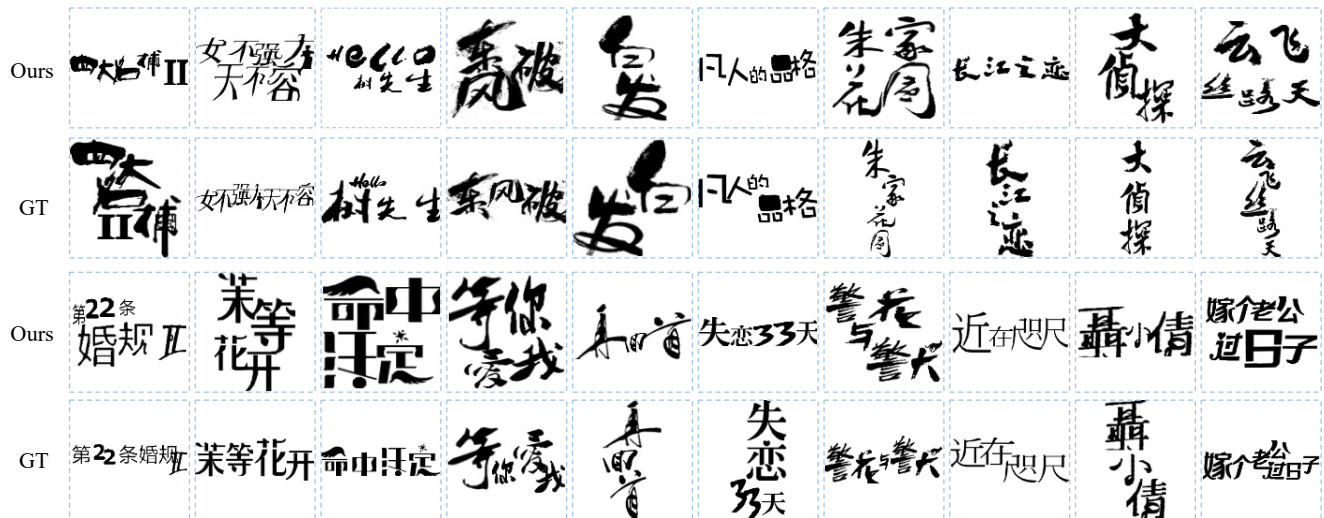 Ours
四大名捕II
女不强大
天不容
Hello
树先生
东风破
白发
凡人的品格
朱家
花园
长江之恋
大偵探
云飞
丝路天
GT
四大名捕
II
女不强大天不容
Hello
树先生
东风破
白发
凡人的
品格
朱家花园
长江之恋
大偵探
云飞丝路天
Ours
第22条
婚规II
茉等
花开
命中
注定
等你
爱我
失恋33天
警花
与
警犬
近在咫尺
聶小倩
嫁个老公
过日子
GT
第22条婚规II
茉等花开
命中注定
等你爱我
失恋
33天
警花与警犬
近在咫尺
聶小倩
嫁个老公
过日子